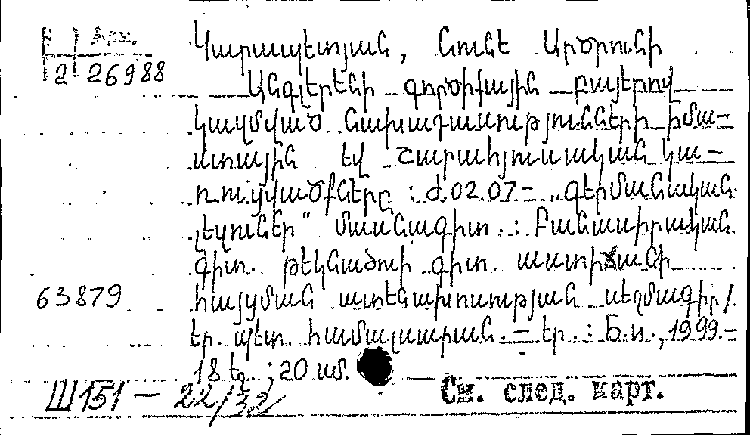 Կարապետյան, Նունե Արծրունի
2 26988
Անգլերենի գործիային բայերով
կազմված նախադասությունների իմա-
ստային եվ շարահյուսական կա-
ռուցվածքները : Ժ.02.07- „գերմանական
լեզուներ" մասնագիտ. : Բանասիրական
գիտ. թեկնածուի գիտ. աստիճանի
63879 հայցման ատենախոսության սեղմագիր/
Եր. պետ. համալսարան. – Եր. : Б.и., 1999.–
18 եջ ; 20 սմ.
Ш151 – 22/32 См. след. карт.